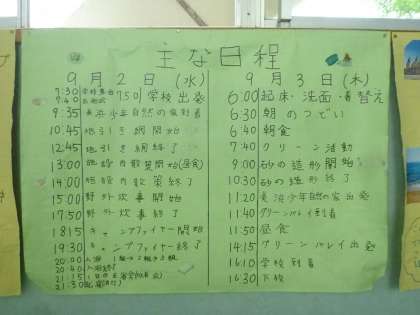 主な日程
9月2日(水)
7:30 学校集合
7:40 出発式 7:50 学校出発
9:35 美浜少年自然の家到着
10:45 地引き網開始
12:45 地引き網終了
13:00 施設内散策開始(昼食)
14:00 施設内散策終了
15:00 野外炊事開始
17:50 野外炊事終了
18:15 キャンプファイヤー開始
19:30 キャンプファイヤー終了
20:00 入浴 1組→2組→3組
20:40 入浴終了
21:15
21:30
9月3日(木)
6:00 起床・洗面・着替え
6:30 朝のつどい
6:40 朝食
7:40 クリーン活動
9:00 砂の造形開始
10:30 砂の造形終了
11:20 美浜少年自然の家出発
11:40 グリーンバレイ到着
11:50 昼食
14:15 グリーンバレイ出発
16:10 学校到着
16:30 下校